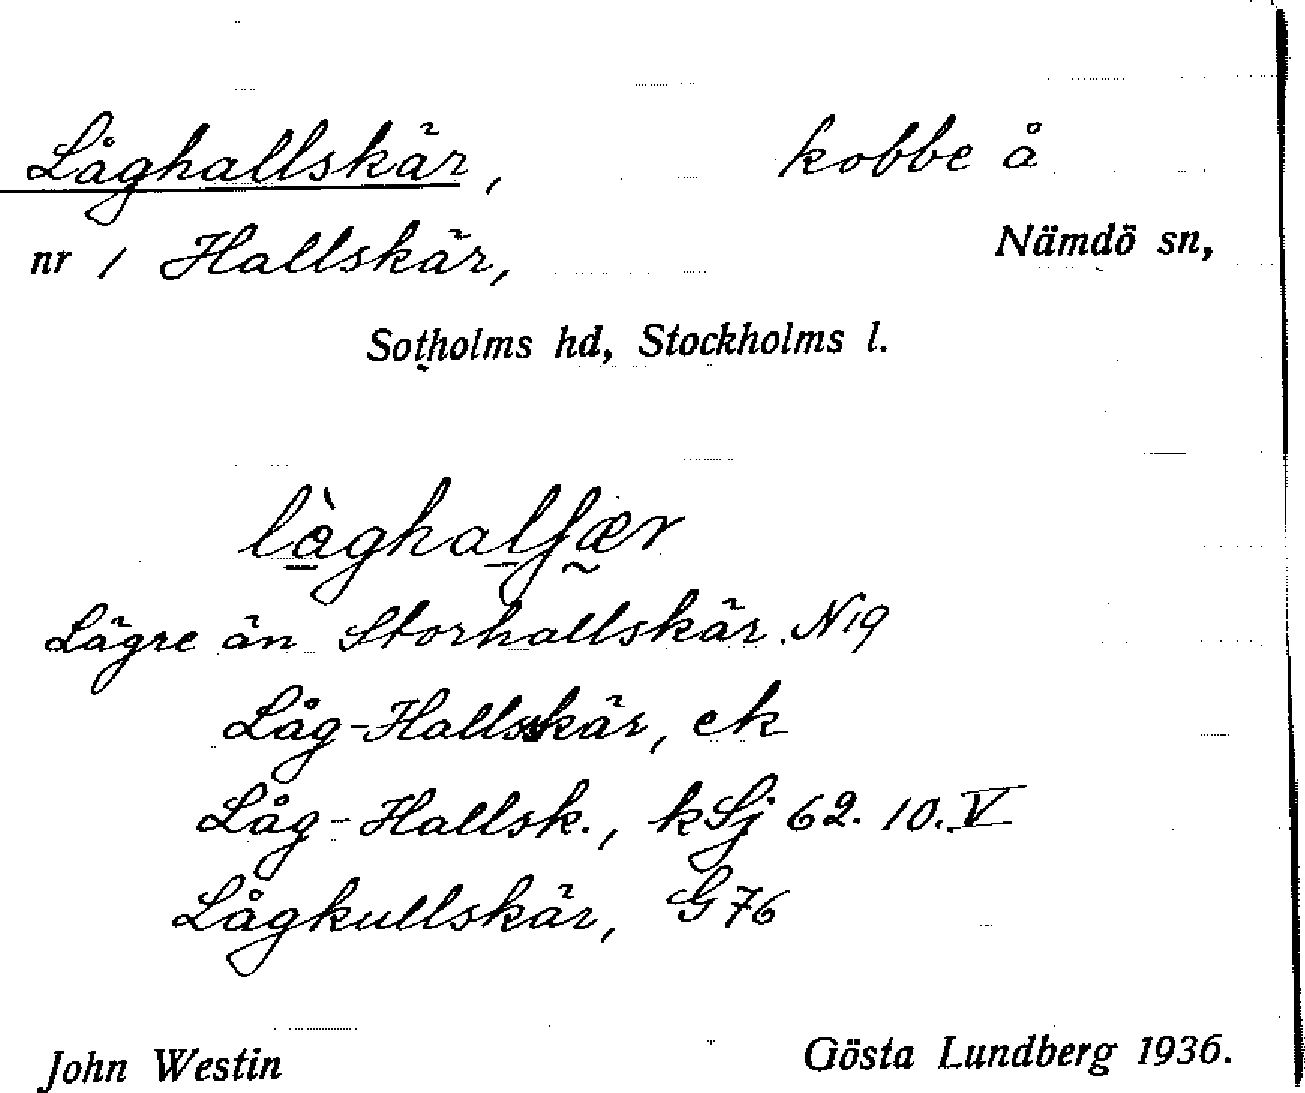 Låghallskär, kobbe å
nr 1 Hallskär, Nämdö sn,
Sotholms hd, Stockholms l.
làghalʃær
Lägre än Storhallskär. N19
Låg-Hallskär, ek
Låg-Hallsk., kSj 62. 10. V
Lågkullskär, G76
John Westin Gösta Lundberg 1936.